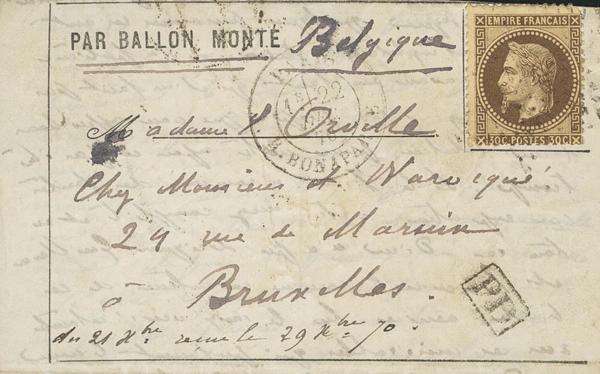 PAR BALLON MONTÉ Belgique
EMPIRE FRANÇAIS
30C POSTES 30C
22
R. BONAPARTE
Madame d'
Chez Monsieur
29 rue de
à
Bruxelles
PD
du 21 Xbre reçue le 29 Xbre 70.